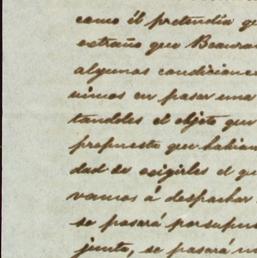 como él pretendía qu
extraño que Beaura
algunas condicione
nimos en pasar una
tandoles el objeto que
propuesto que habian
dad de exigirles el qu
vamos á despachar
se pasará por supue
junta, se pasará u